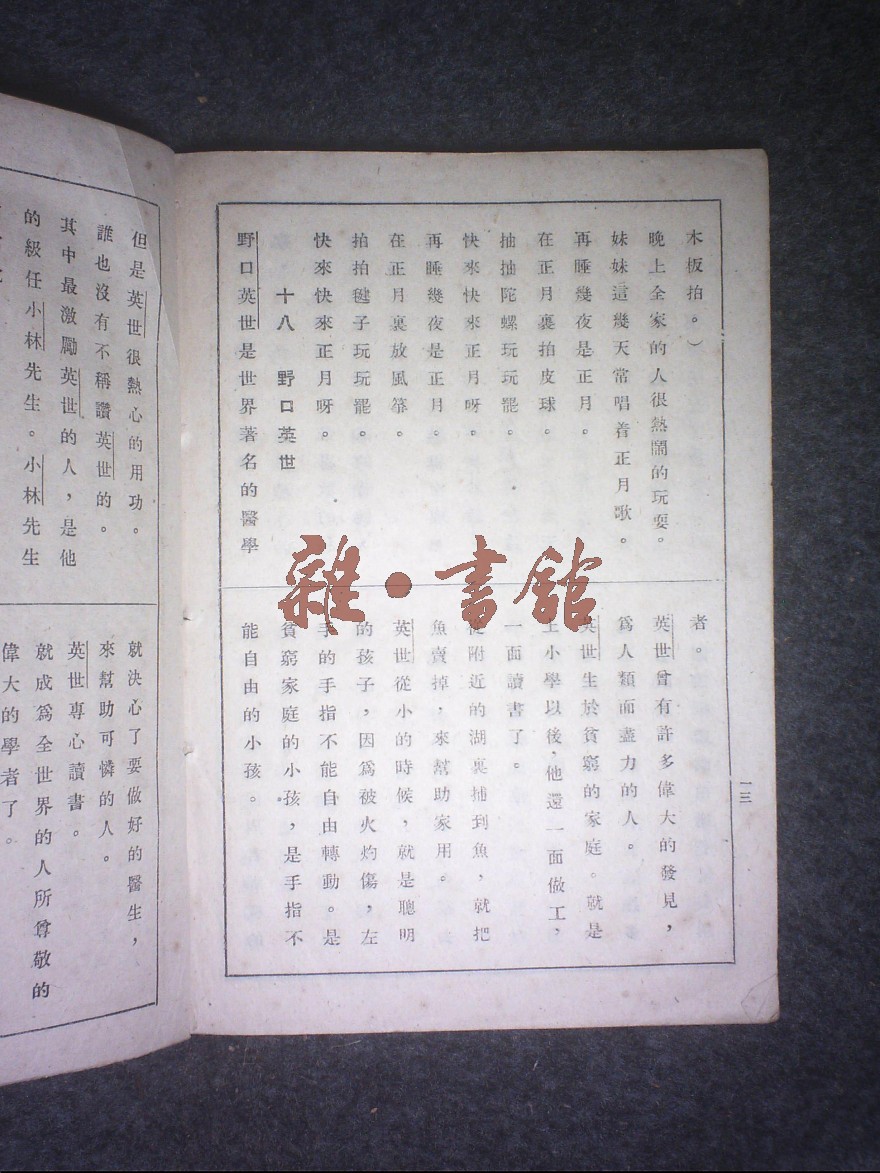 木板拍。)
晚上全家的人很熱鬧的玩耍。
妹妹這幾天常唱着正月歌。
再睡幾夜是正月。
在正月裏拍皮球。
抽抽陀螺玩玩罷。
快來快來正月呀。
再睡幾夜是正月。
在正月裏放風箏。
拍拍毽子玩玩罷。
快來快來正月呀。
十八 野口英世
野口英世是世界著名的醫學
者。
英世曾有許多偉大的發見，
爲人類而盡力的人。
英世生於貧窮的家庭。就是
上小學以後，他還一面做工，
一面讀書了。
從附近的湖裏捕到魚，就把
魚賣掉，來幫助家用。
英世從小的時候，就是聰明
的孩子，因爲被火灼傷，左
手的手指不能自由轉動。是
貧窮家庭的小孩，是手指不
能自由的小孩。
一三
但是英世很熱心的用功。
誰也沒有不稱讚英世的。
其中最激勵英世的人，是他
的級任小林先生。小林先生
就決心了要做好的醫生，
來幫助可憐的人。
英世專心讀書。
就成爲全世界的人所尊敬的
偉大的學者了。
雜·書館